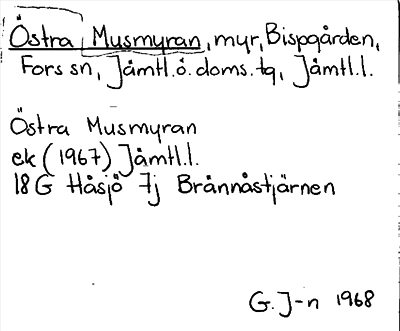 Östra Musmyran, myr, Bispgården,
Fors sn, Jämtl.ö.doms.tg, Jämtl.l.
Östra Musmyran
ek (1967) Jämtl.l.
18 G Håsjö 7j Brännåstjärnen
G. J-n 1968